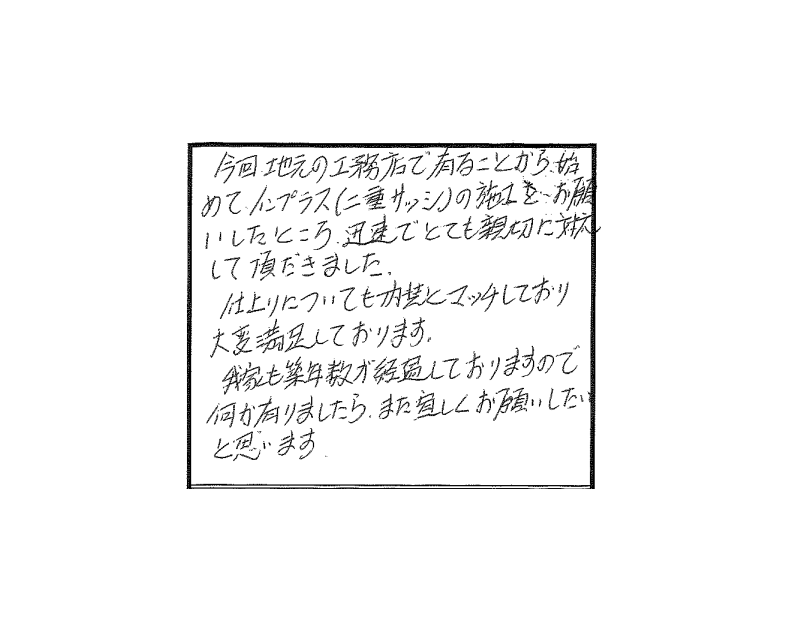 今回地元の工務店で有ることから、始
めて、インプラス(二重サッシ)の施工をお願
いしたところ、迅速でとても親切に対応
して頂だきました。
仕上りについても内装とマッチしており
大変満足しております。
我家も築年数が経過しておりますので
何か有りましたら、また宜しくお願いしたい
と思います.